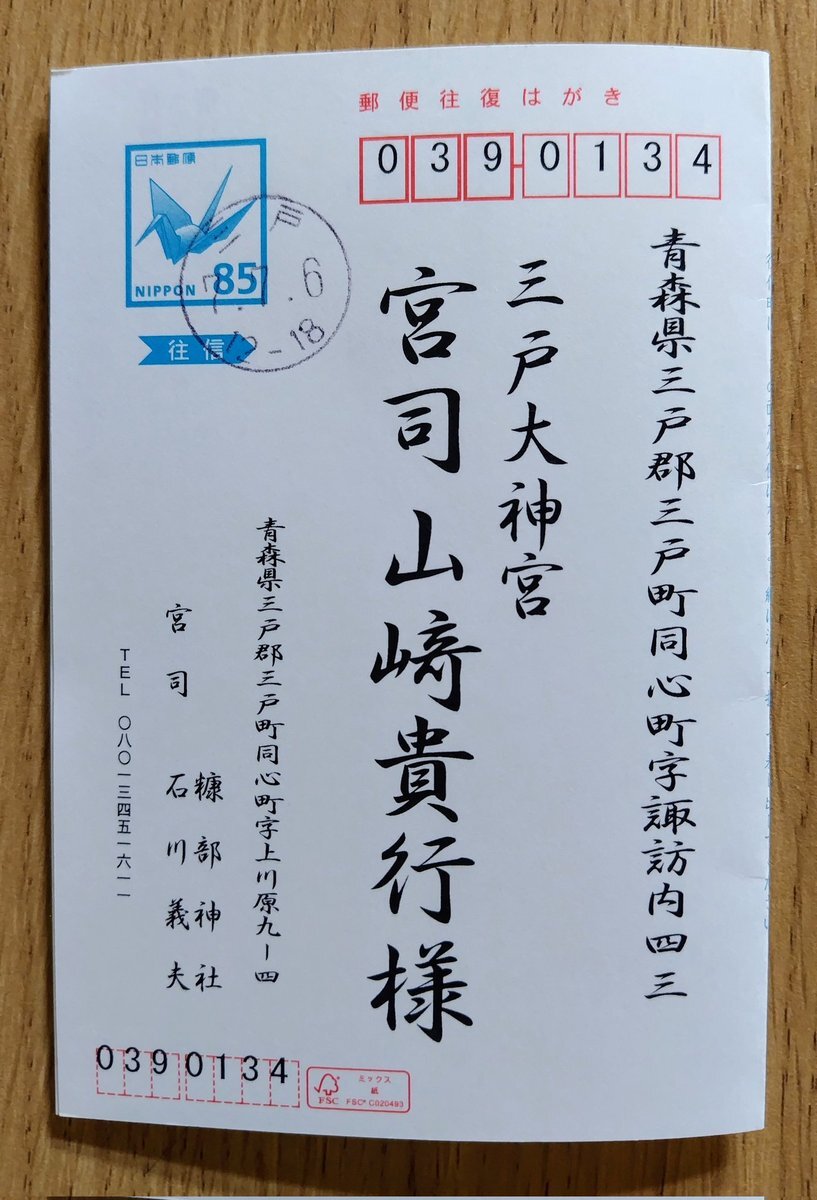 郵便往復はがき
039-0134
日本郵便
NIPPON 85
三戸
7.7.6
12-18
往信
青森県三戸郡三戸町同心町字諏訪内四三
三戸大神宮
宮司 山﨑貴行様
青森県三戸郡三戸町同心町字上川原九ー四
糠部神社
宮司 石川義夫
TEL 〇八〇一三四五一六一一
0390134
ミックス
紙
FSC
FSC® C020493